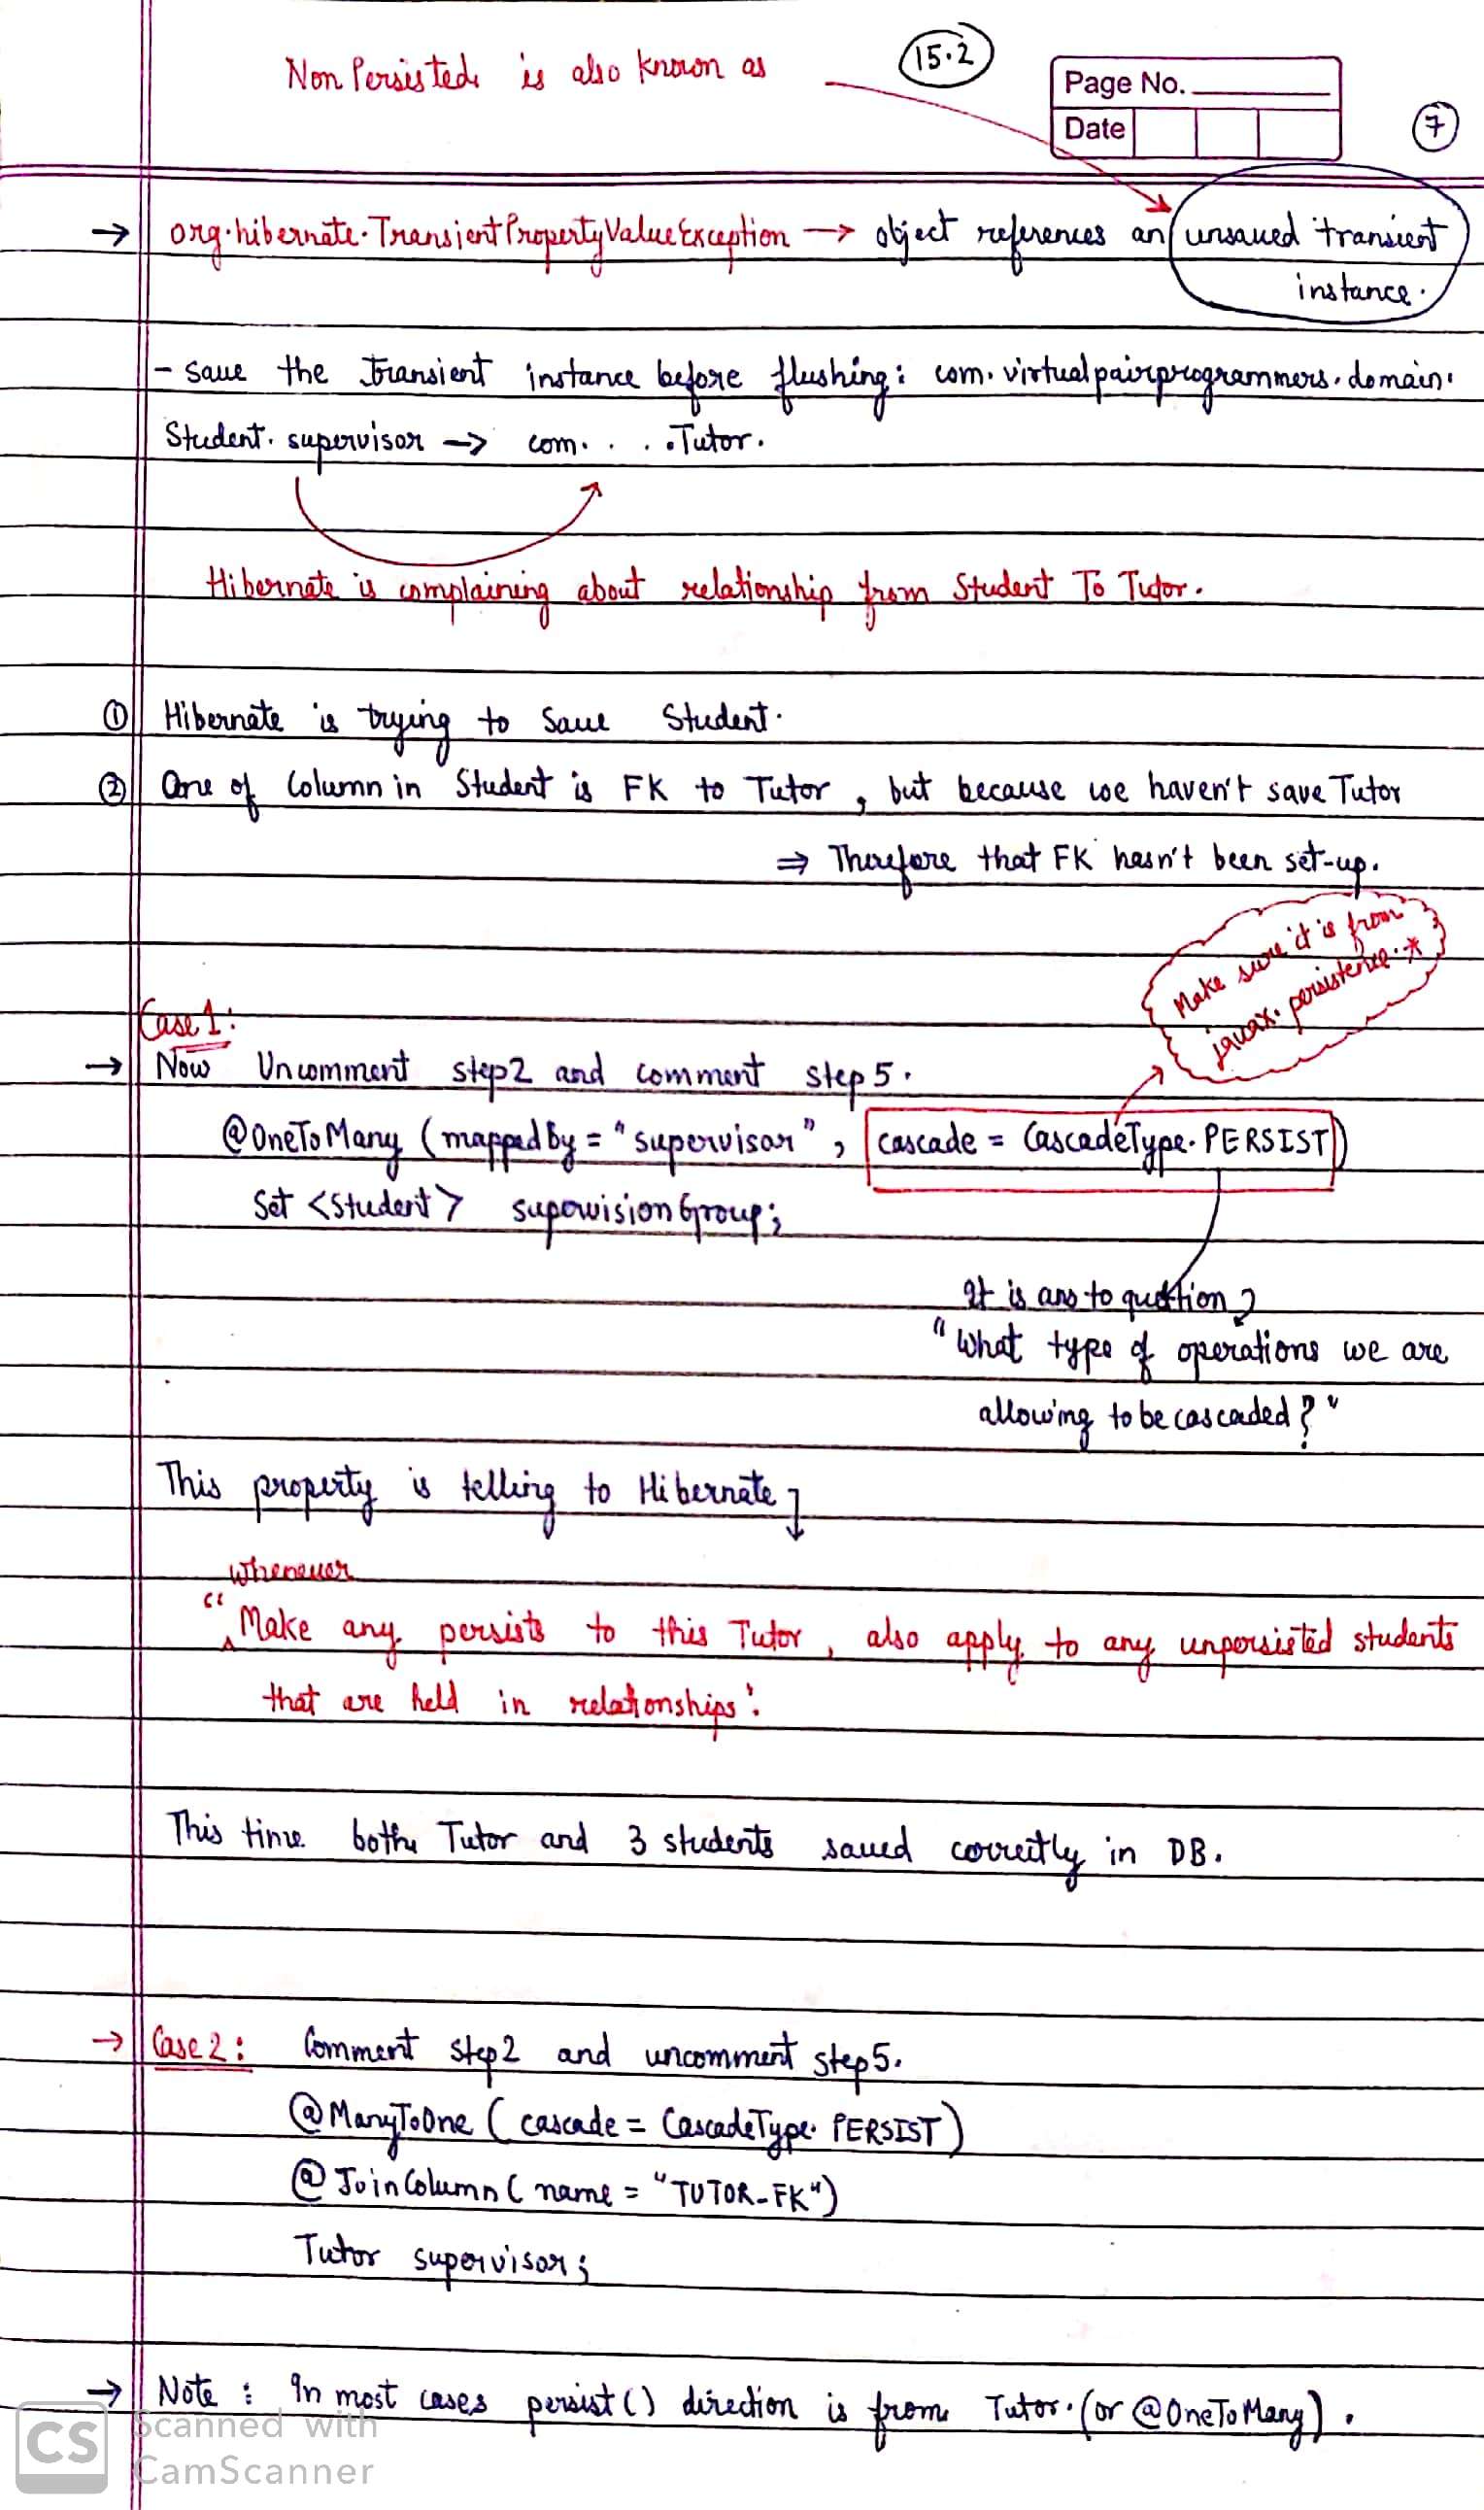 Non Persisted is also known as
15.2
Page No.
Date
7
→ org.hibernate.TransientPropertyValueException → object references an unsaved transient
instance.
- save the transient instance before flushing: com.virtualpairprogrammers.domain.
Student.supervisor → com. . . .Tutor.
Hibernate is complaining about relationship from Student To Tutor.
① Hibernate is trying to save Student.
② One of Column in Student is FK to Tutor, but because we haven't save Tutor
⇒ Therefore that FK hasn't been set-up.
Make sure it is from
javax.persistence.*
Case 1:
→ Now Uncomment step2 and comment step 5.
@OneToMany (mappedBy = "supervisor", cascade = CascadeType.PERSIST)
Set <Student> supervisionGroup;
It is ans to question
"What type of operations we are
allowing to be cascaded?"
This property is telling to Hibernate
whenever
"Make any persists to this Tutor, also apply to any unpersisted students
that are held in relationships".
This time both Tutor and 3 students saved correctly in DB.
→ Case 2: Comment step2 and uncomment step5.
@ManyToOne (cascade = CascadeType.PERSIST)
@JoinColumn (name = "TUTOR_FK")
Tutor supervisor;
→ Note: In most cases persist() direction is from Tutor. (or @OneToMany).
CS
Scanned with
CamScanner